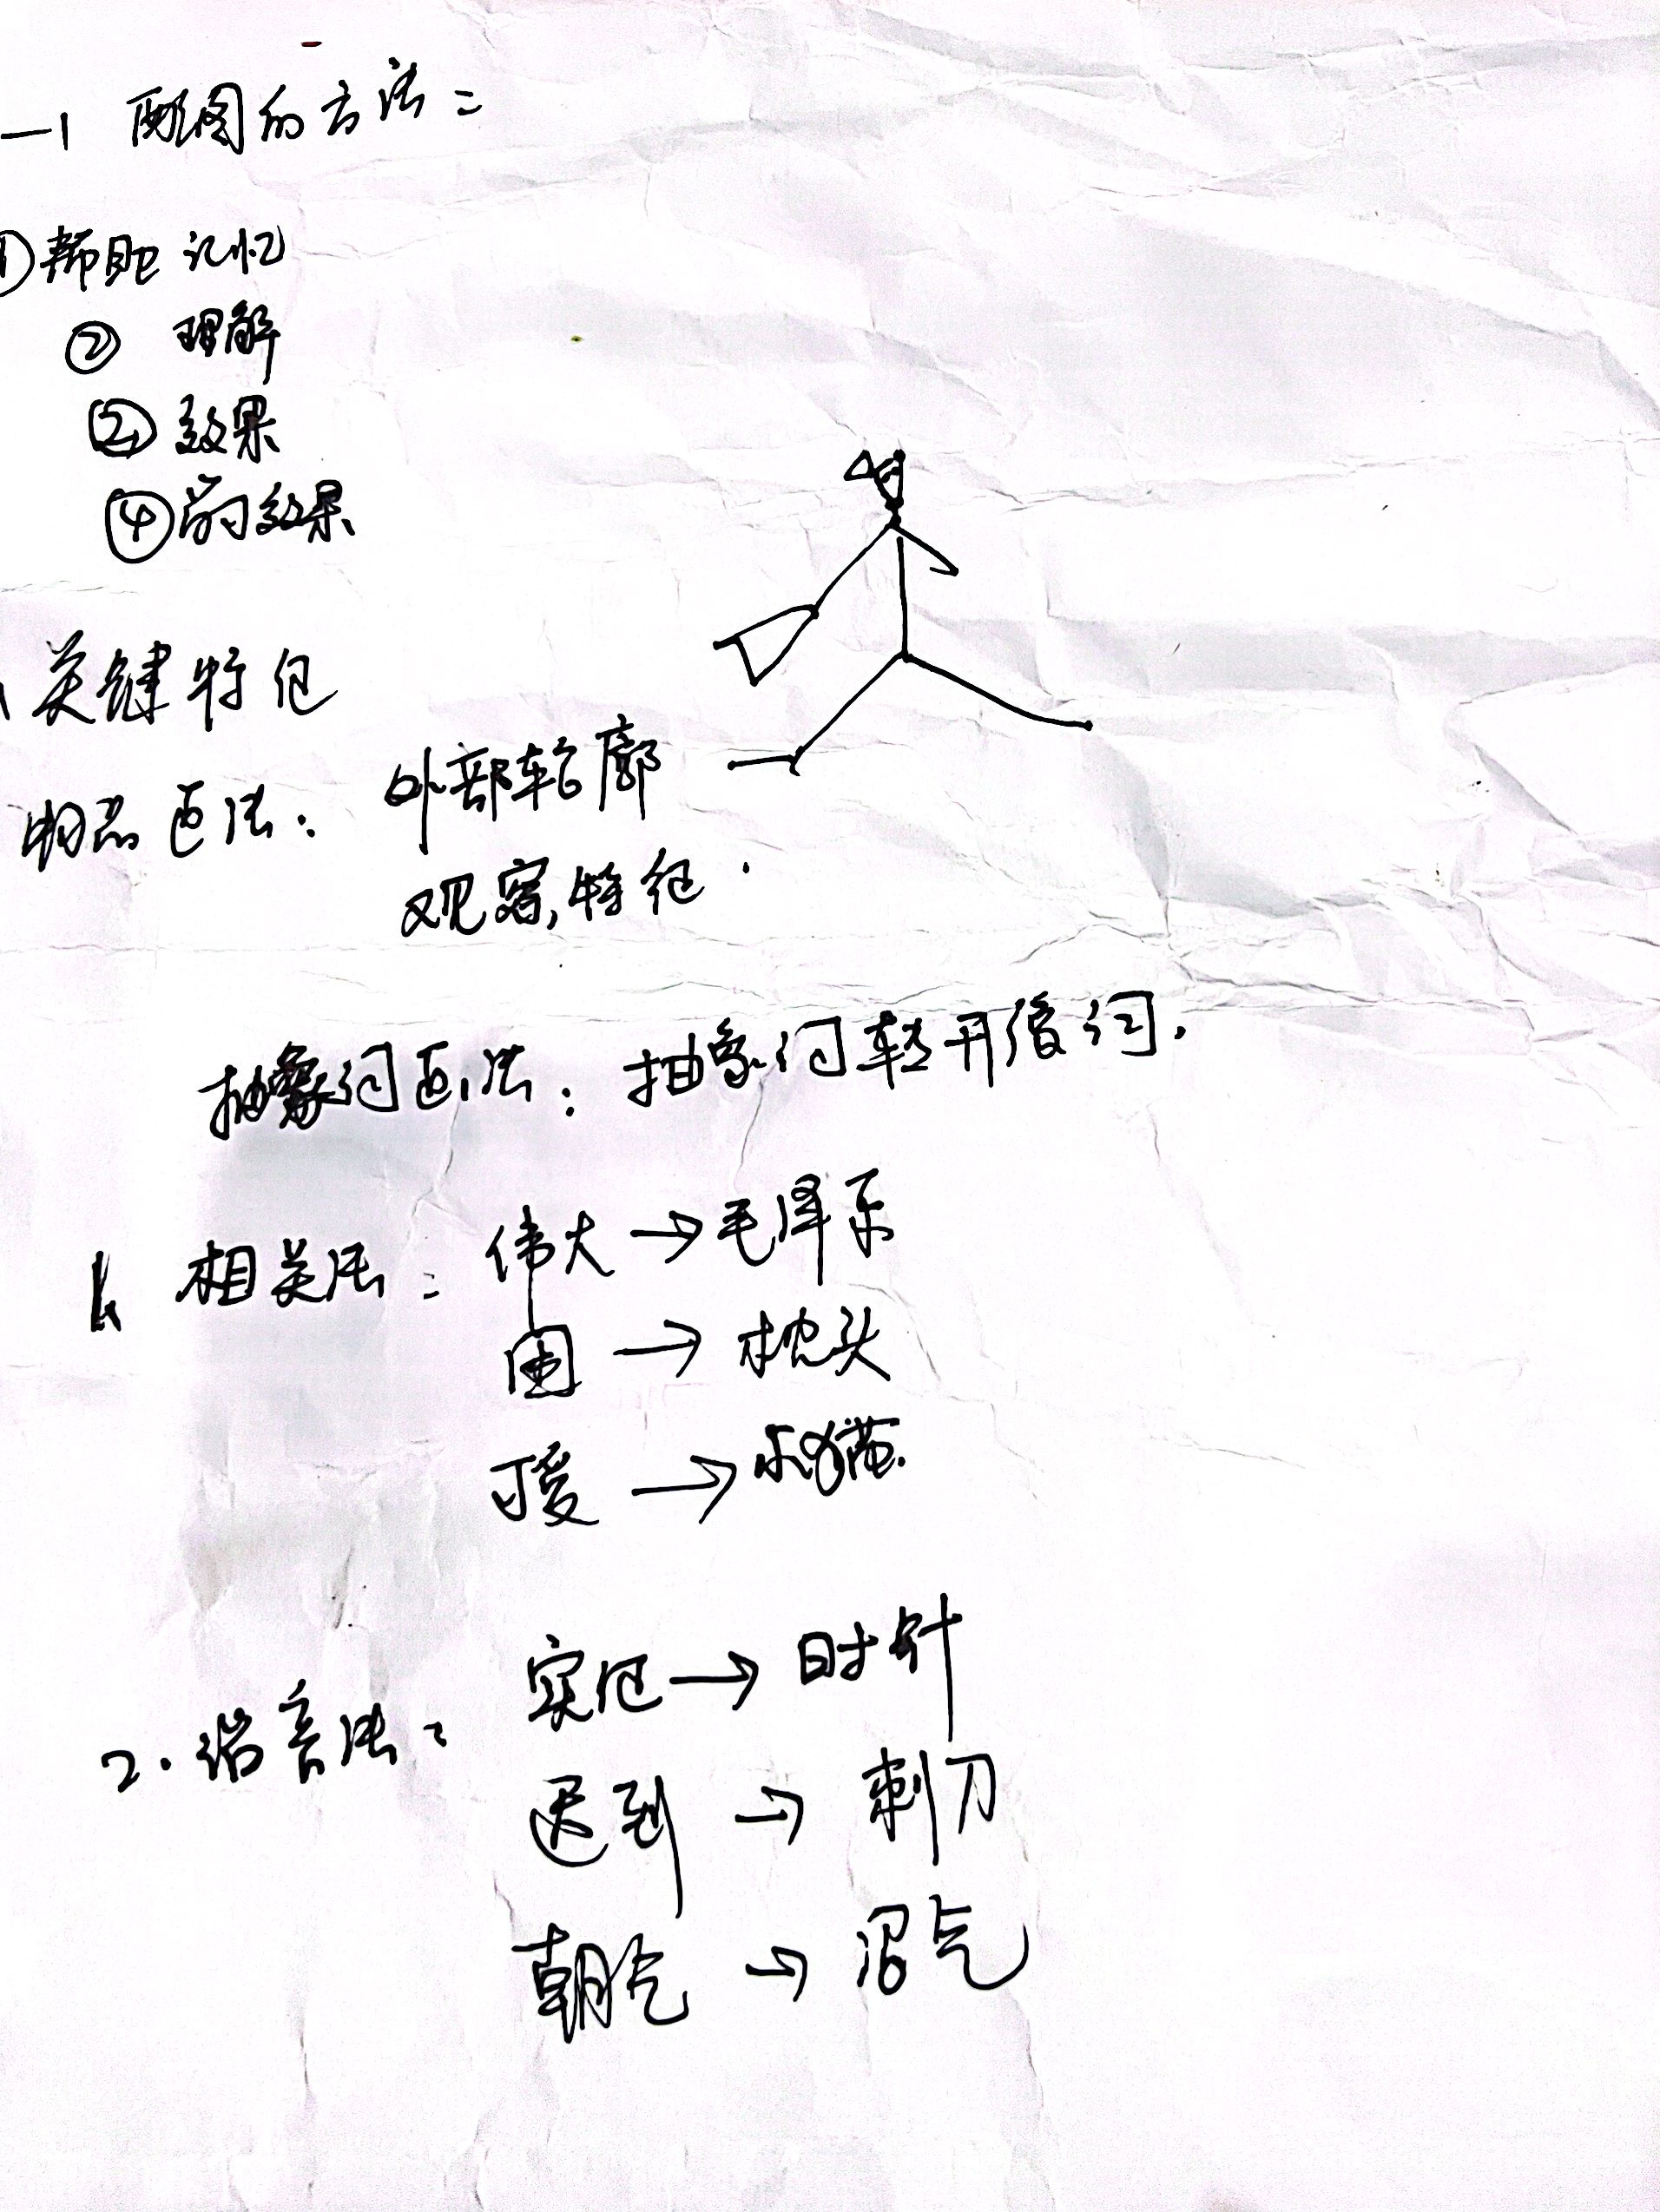 一1 配图的方法：
①帮助 记忆
② 理解
② 效果
④ 效果
关键特征
物品画法： 外部轮廓
观察，特征．
抽象词画法：抽象词转形像词．
1. 相关法： 伟大 → 毛泽东
困 → 枕头
可爱 → 小猫．
2. 谐音法： 实记 → 时针
迟到 → 刺刀
朝气 → 沼气